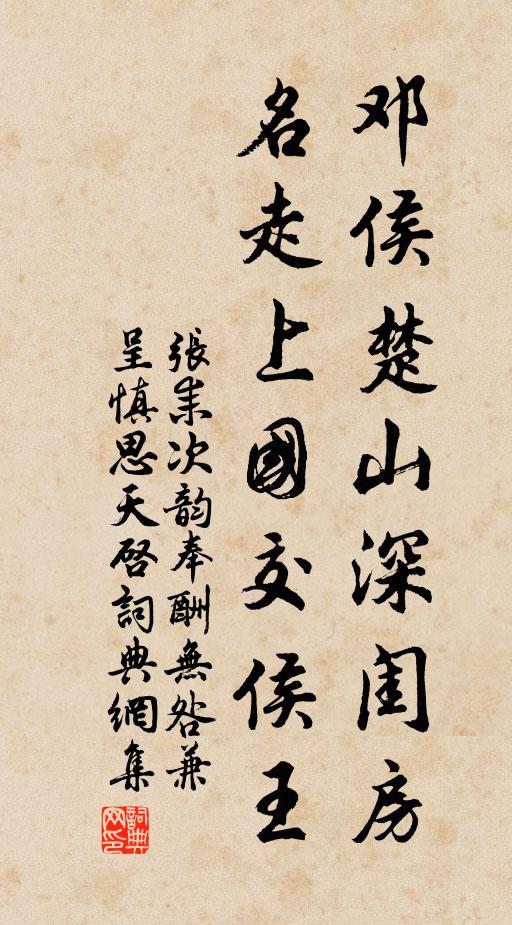 邓侯楚山深闺房
名走上國交侯王
張耒次韵奉酬無咎兼
呈慎思天啓詞典網集
詞典网印